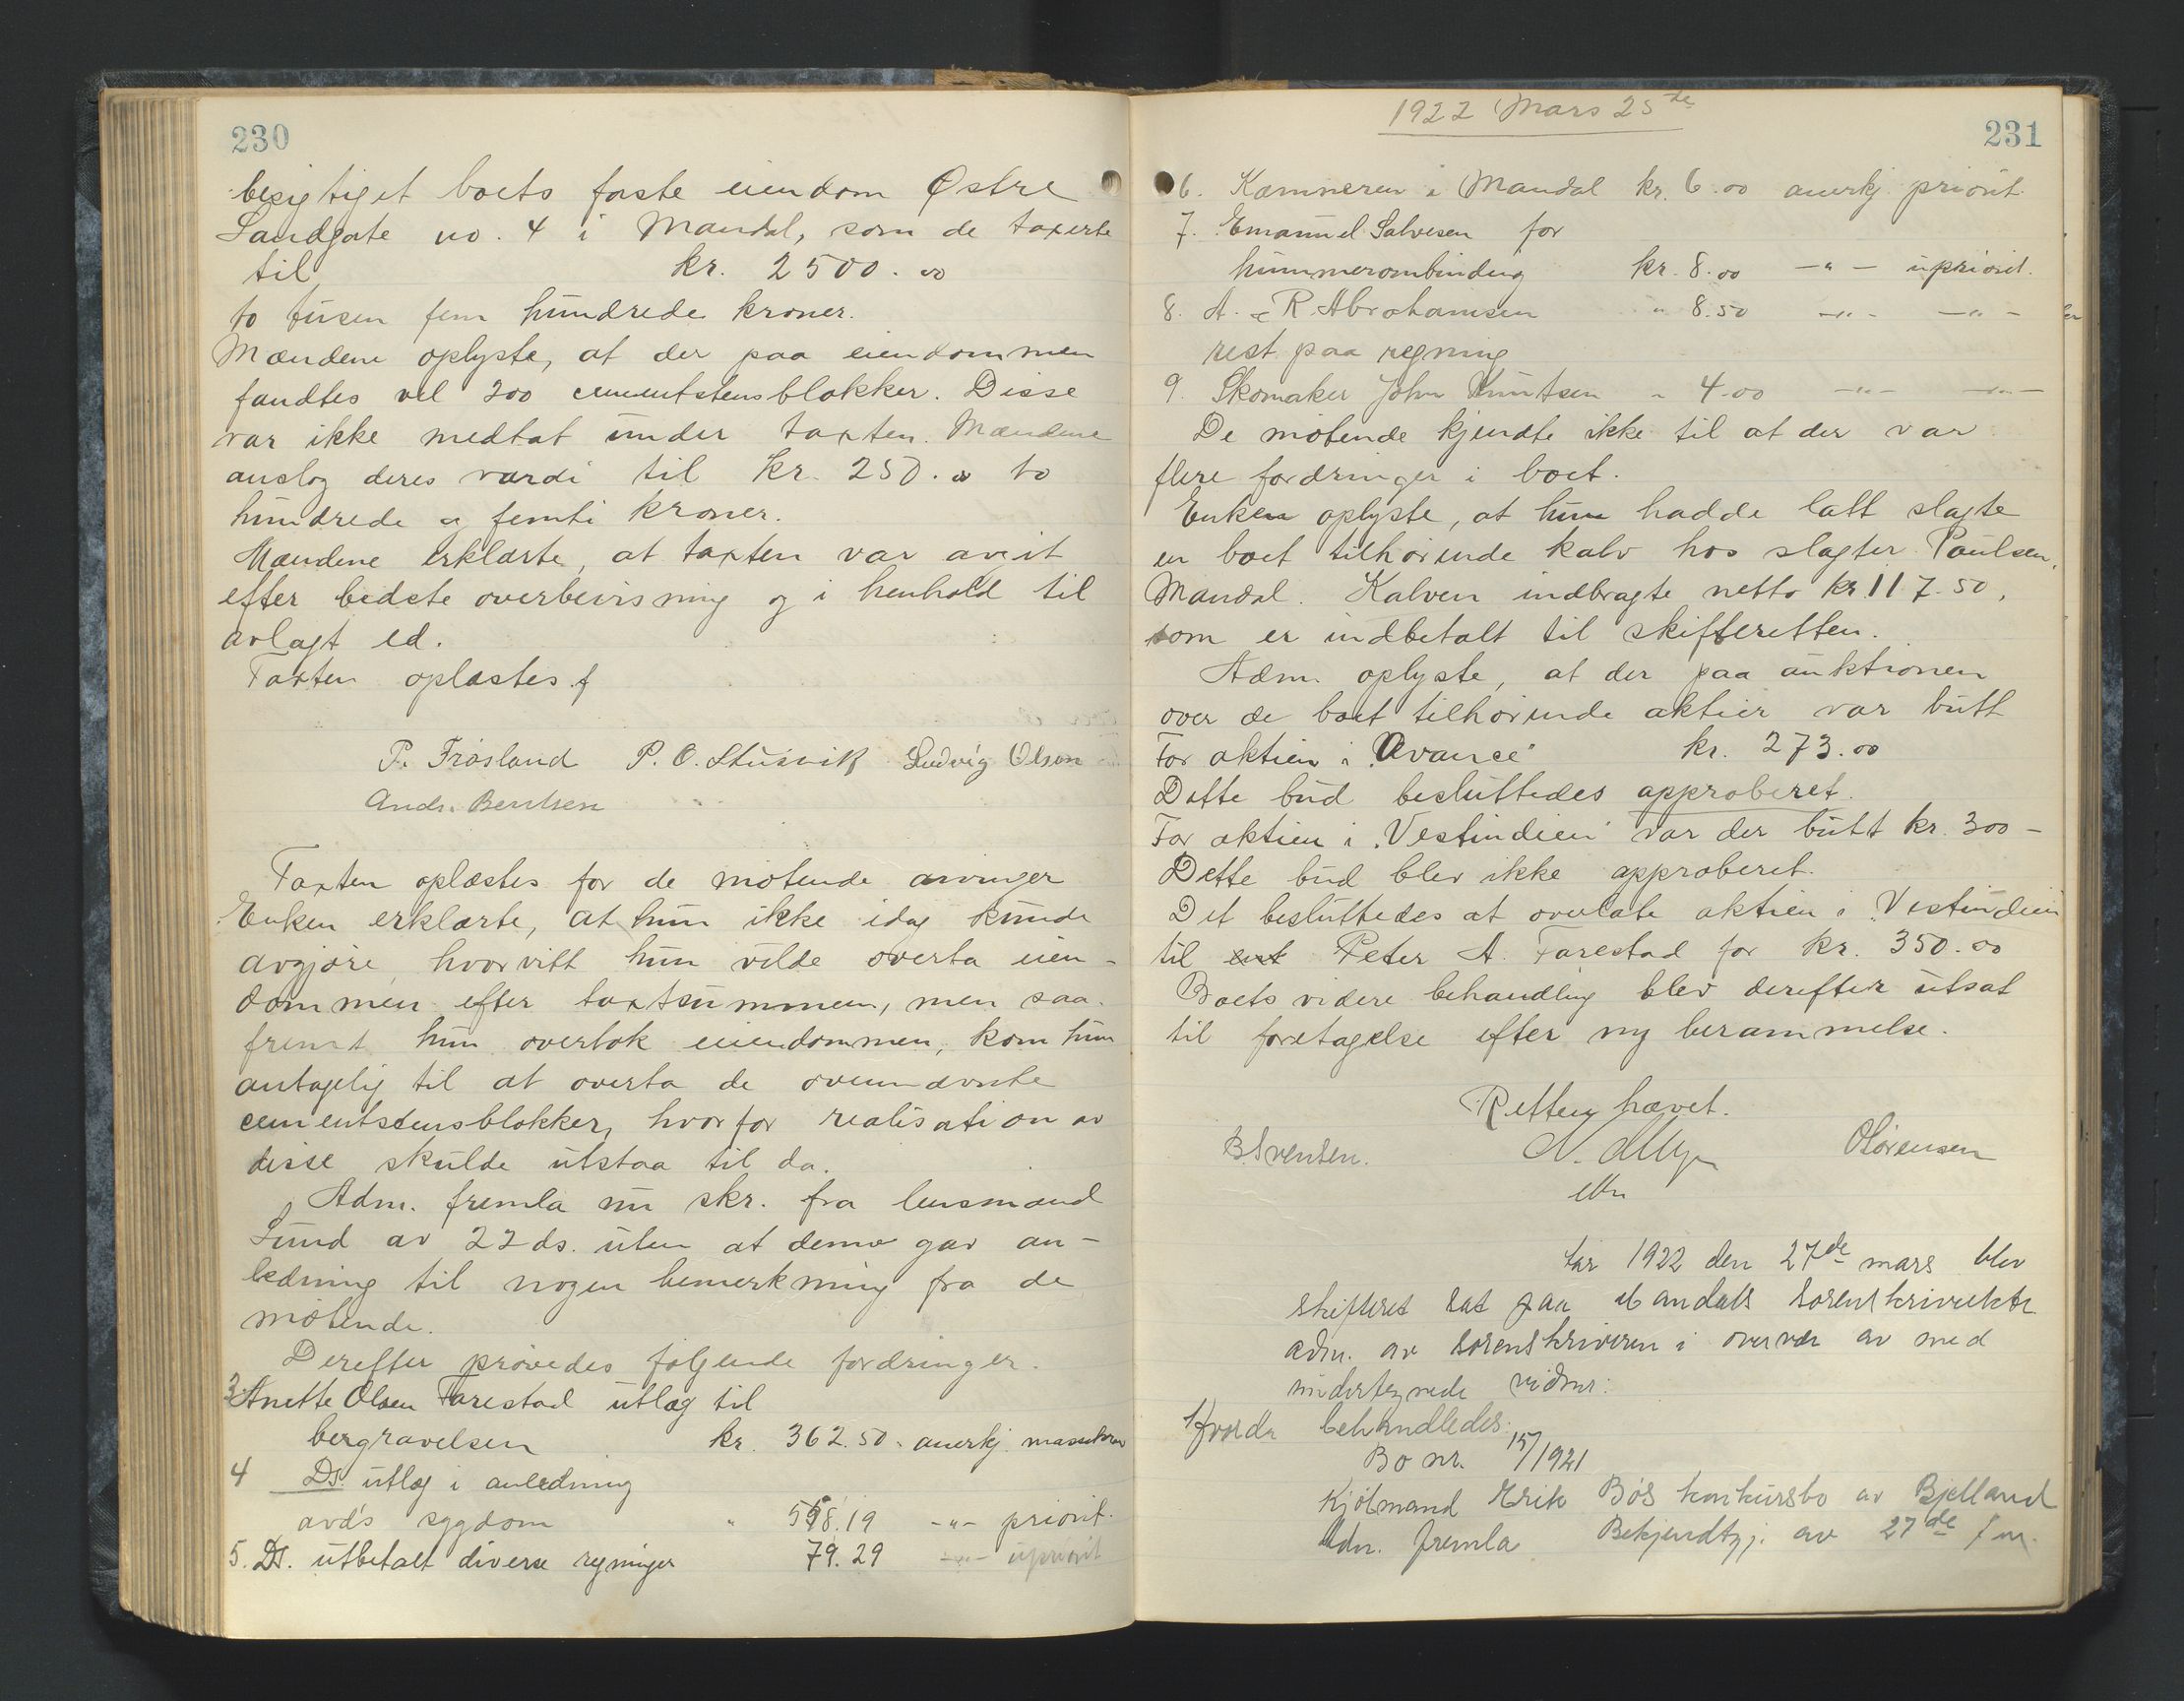 230
besigtiget boets faste eiendom Østre
Sandgate no. 4 i Mandal, som de taxerte
til kr. 2500.00
to tusen fem hundrede kroner.
Mændene oplyste, at der paa eiendommen
fandtes vel 200 cementstensblokker. Disse
var ikke medtat under taxten. Mændene
anslog deres værdi til kr. 250.00 to
hundrede og femti kroner.
Mændene erklærte, at taxten var avgit
efter bedste overbevisning og i henhold til
avlagt ed.
Taxten oplæstes.
P. Frøsland P. O. Stusvik Ludvig Olsen
Andr. Berntsen
Taxten oplæstes for de møtende arvinger
Enken erklærte, at hun ikke idag kunde
avgjøre, hvorvitt hun vilde overta eien-
dommen efter taxtsummen, men saa-
fremt hun overtok eiendommen, kom hun
antagelig til at overta de ovennævnte
cementstensblokker, hvorfor realisation av
disse skulde utstaa til da.
Adm. fremla nu skr. fra lensmand
Lund av 22 ds. uten at denne gav an-
ledning til nogen bemerkning fra de
møtende.
Derefter prøvedes følgende fordringer.
3 Anette Olsen Farestad utlæg til
begravelsen kr. 362.50 anerkj. massekrav
4 Ds. utlæg i anledning
avd's sygdom " 598.19 -"- priorit.
5. Ds. utbetalt diverse regninger 79.29 -"- upriorit
1922 Mars 25de
231
6. Kæmneren i Mandal kr. 6.00 anerkj. priorit.
7. Emanuel Salvesen for
hummerombinding kr. 8.00 -"- upriorit.
8. A. & R. Abrahamsen " 8.50 -"- -"-
rest paa regning
9. Skomaker John Knutsen " 4.00 -"- -"-
De møtende kjendte ikke til at der var
flere fordringer i boet.
Enken oplyste, at hun hadde latt slagte
en boet tilhørende kalv hos slagter Paulsen,
Mandal. Kalven indbragte netto kr. 117.50,
som er indbetalt til skifteretten.
Adm. oplyste, at der paa auktionen
over de boet tilhørende aktier var butt
For aktien i "Avance" kr. 273.00
Dette bud besluttedes approberet.
For aktien i "Vestindien" var der butt kr. 300 -
Dette bud blev ikke approberet.
Det besluttedes at overlate aktien i "Vestindien
til Peter A. Farestad for kr. 350.00
Boets videre behandling blev derefter utsat
til foretagelse efter ny berammelse.
Retten hævet.
B. Svensen. OSørensen
Aar 1922 den 27de mars blev
skifteret sat paa Mandals sorenskriverktr
adm. av sorenskriveren i overvær av med
undertegnede vidner:
Hvorda behandledes:
Bo nr. 15/1921
Kjøbmand Erik Bøs konkursbo av Bjelland
Adm. fremla Bekjendtgj. av 27de f.m.